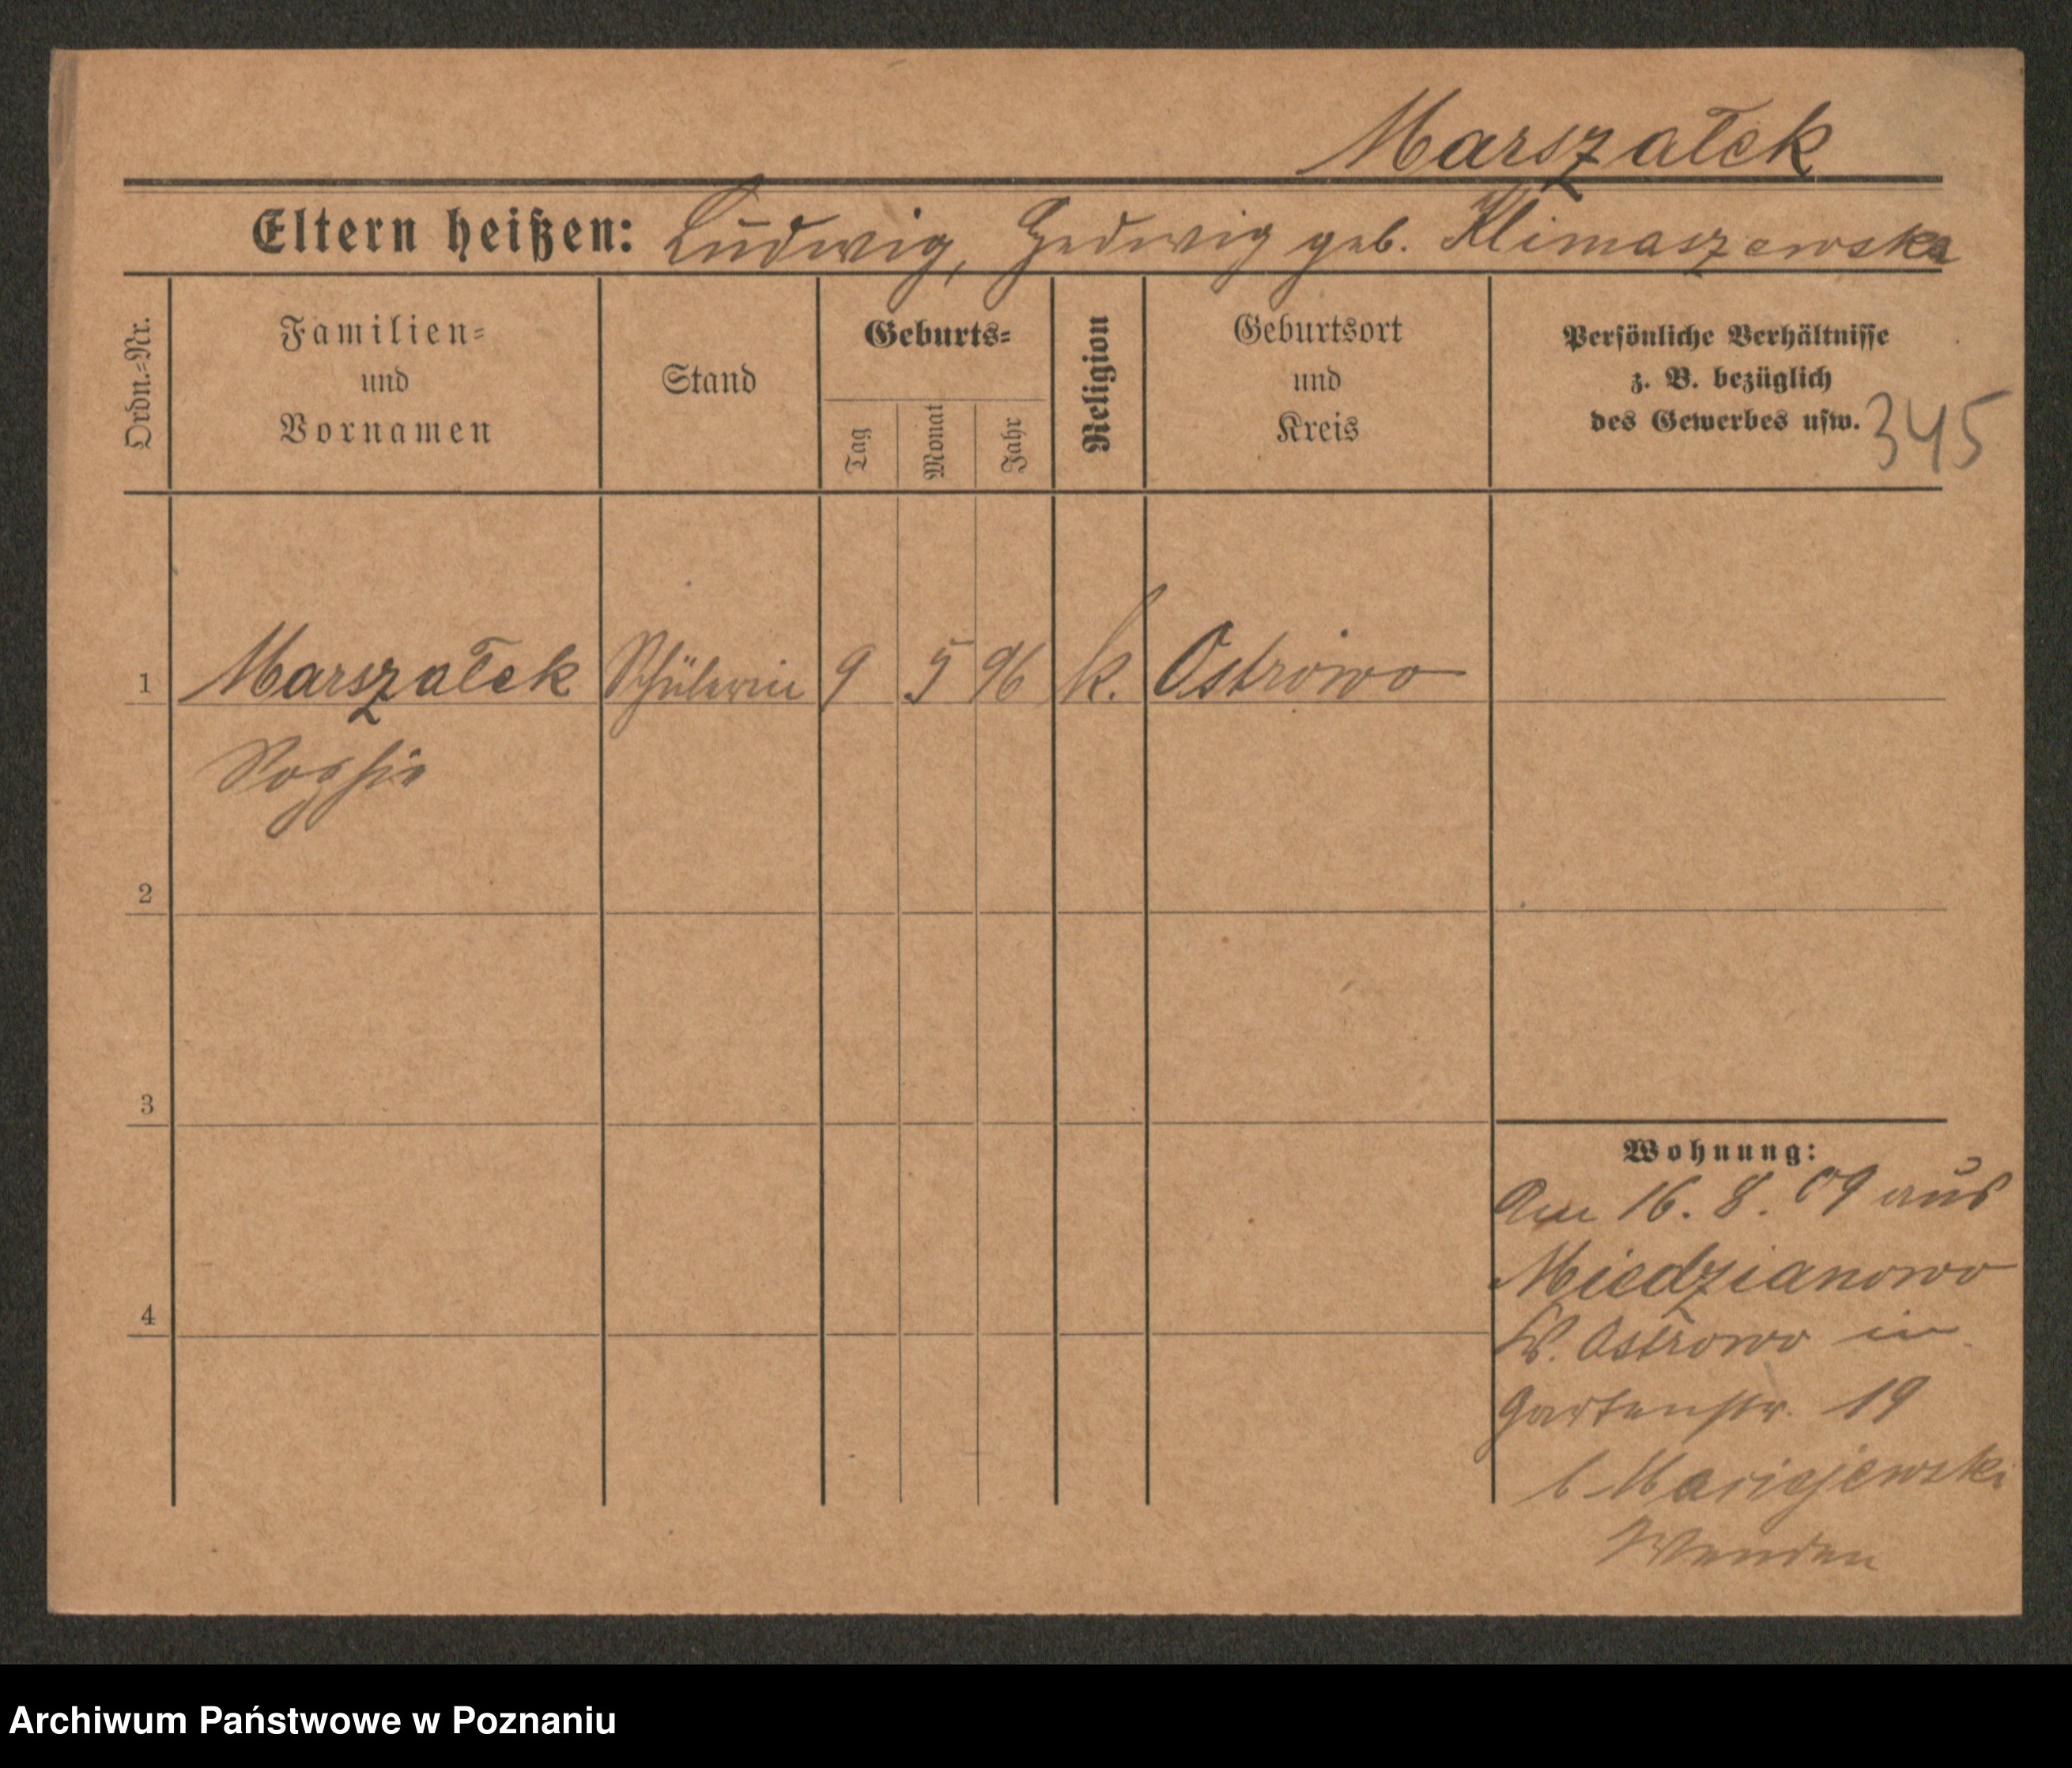 Marszałek
Eltern heißen: Ludwig, Hedwig geb. Klimaszewska
Ordn.=Nr.
Familien=
und
Vornamen
Stand
Geburts=
Tag
Monat
Jahr
Religion
Geburtsort
und
Kreis
Persönliche Verhältnisse
z. B. bezüglich
des Gewerbes usw.
345
1 Marszałek Schülerin 9 5 96 k. Ostrowo
Sophie
2
3
4
Wohnung:
Am 16. 8. 09 aus
Miedzianowo
Ostrowo in
Gartenstr. 19
b
Wenden
Archiwum Państwowe w Poznaniu